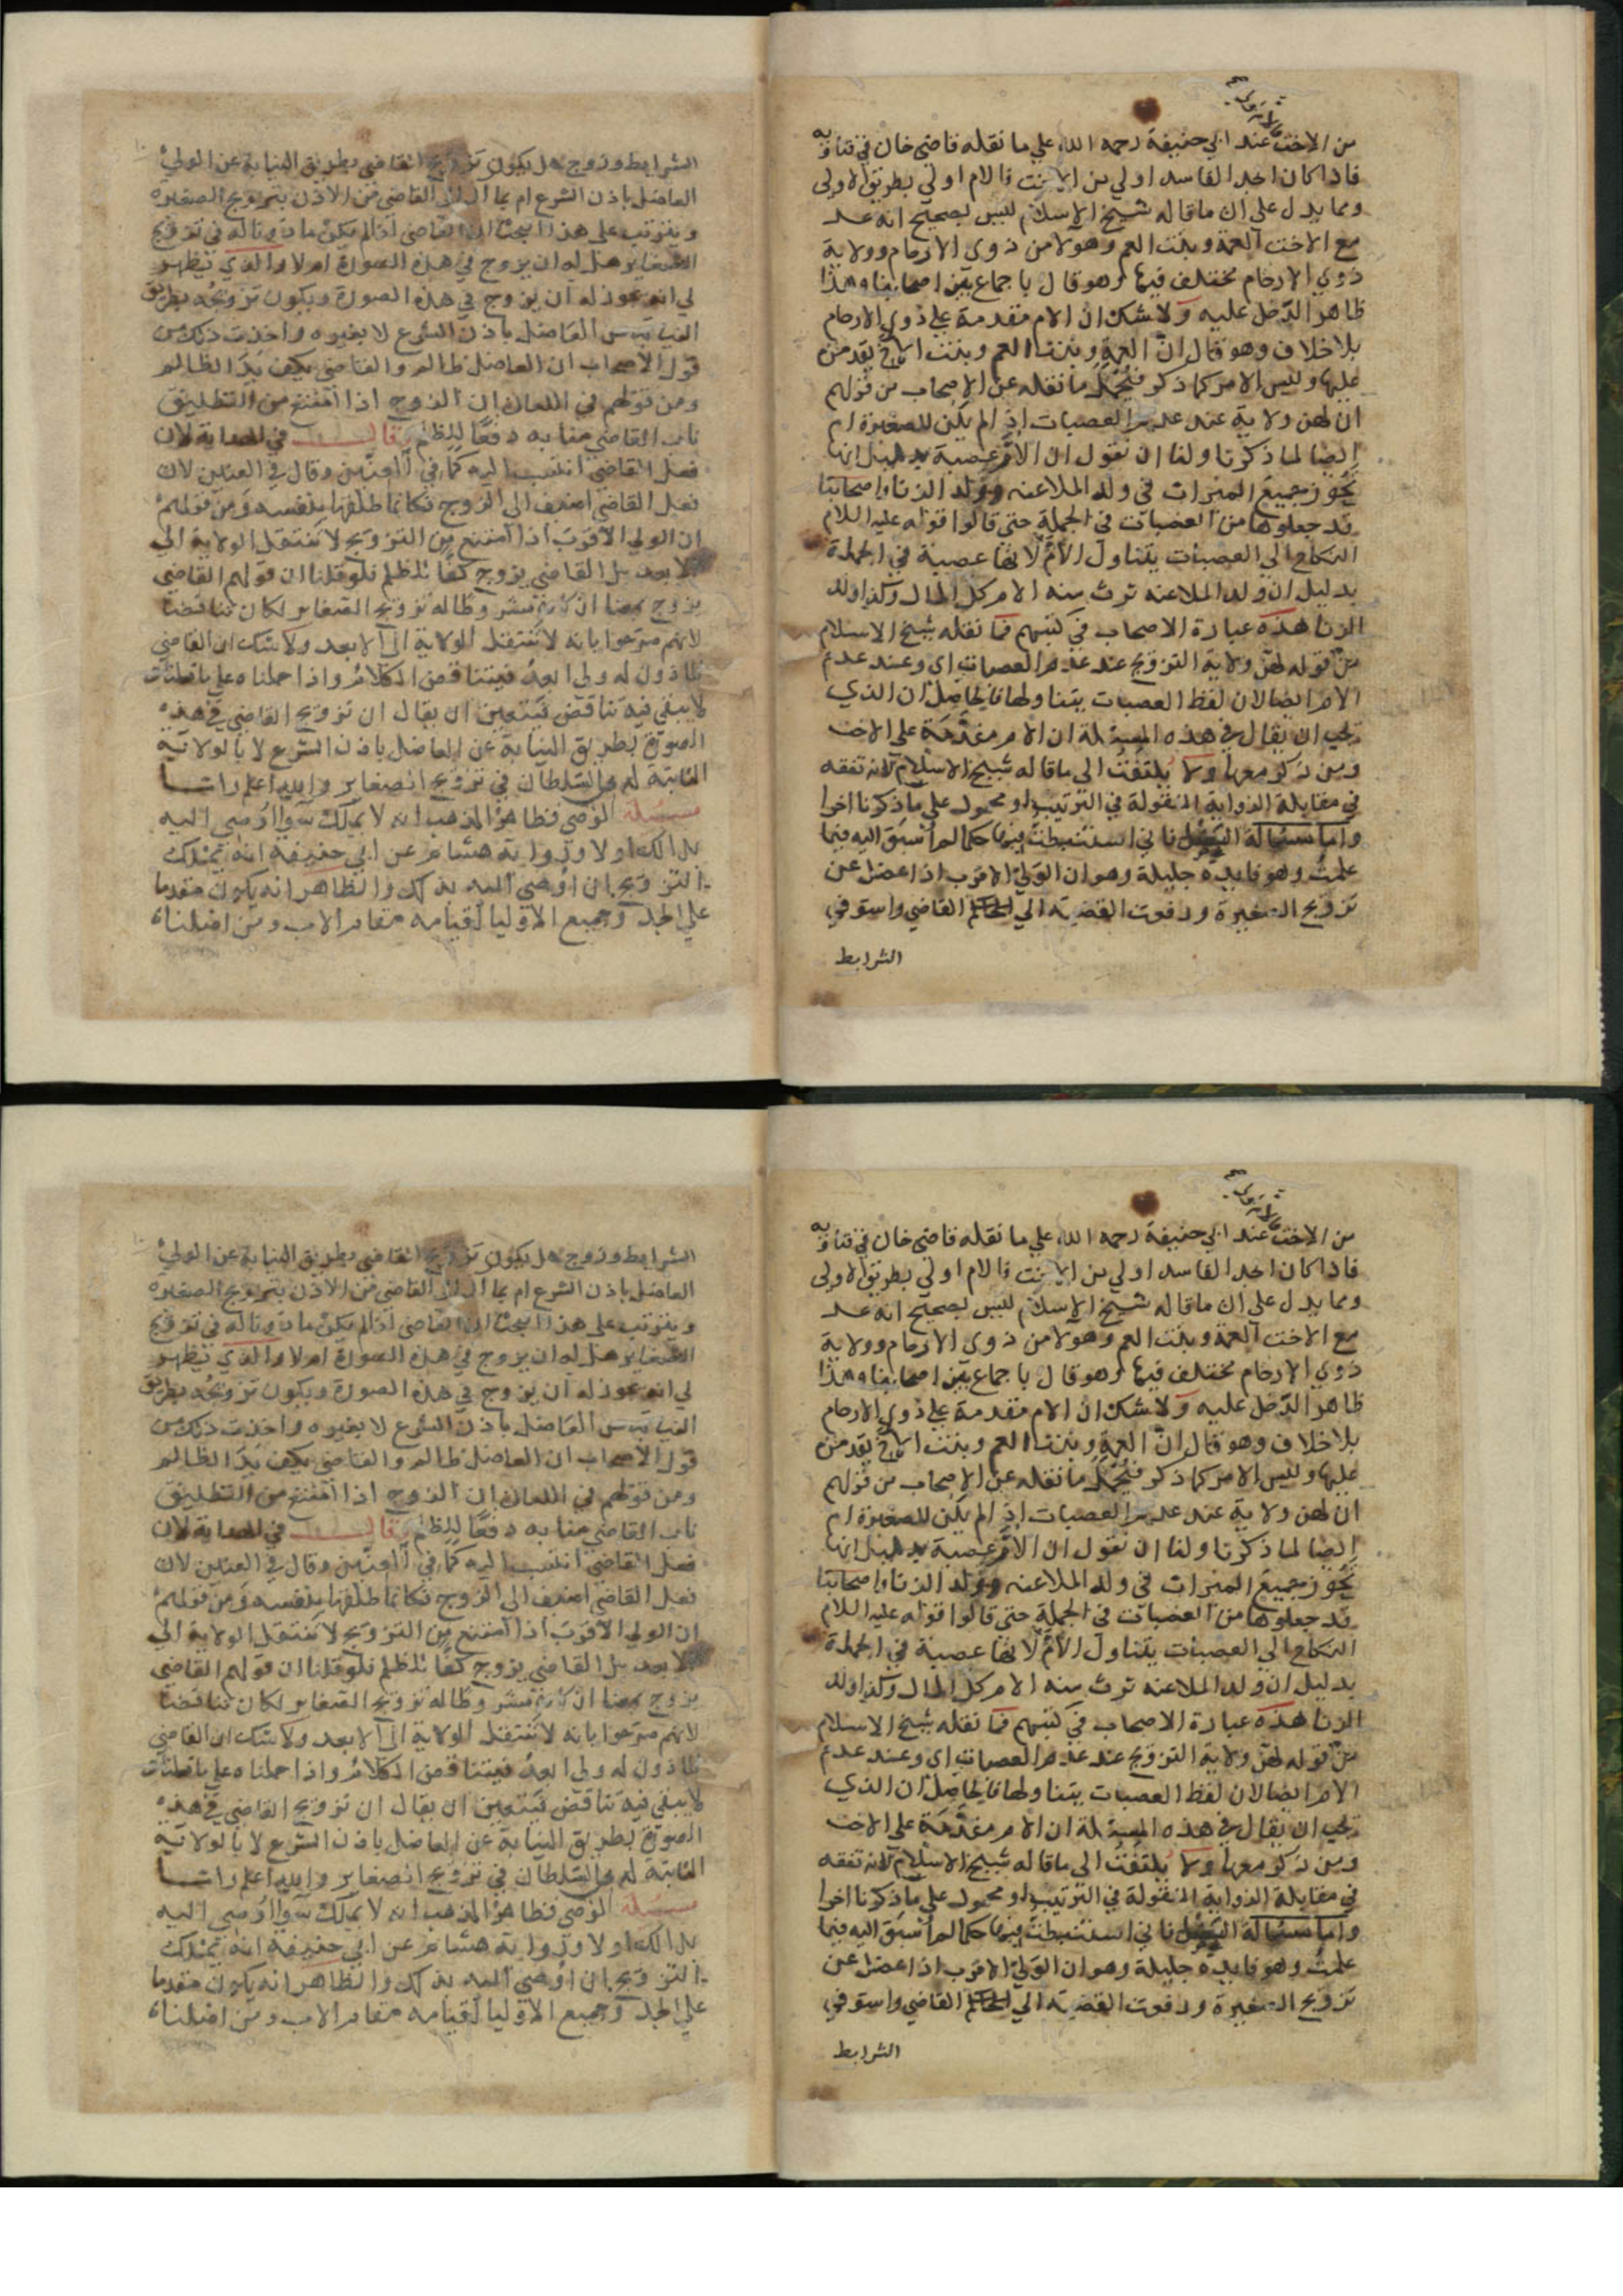 من الاخت عند ابي حنيفة رحمه الله علي ما نقله قاضي خان في فتاويه
فاذا كان الجد الفاسد اولي من الاخت فالام اولي بطريق الاولى
ومما يدل علي ان ما قاله شيخ الاسلام ليس بصحيح انه عد
مع الاخت العمة وبنت العم وهولا من ذوي الارحام وولاية
ذوي الارحام مختلف فيها وهو قال باجماع بين اصحابنا وهذا
ظاهر الدخل عليه ولا شك ان الام مقدمة علي ذوي الارحام
بلا خلاف وهو قال ان العمة وبنت العم وبنت الاخ يقدمن
عليها وليس الامر كما ذكر فيحمل ما نقله عن الاصحاب من قولهم
ان لهن ولاية عند عدم العصبات اذا لم يكن للصغيرة ام
ايضا لما ذكرنا ولنا ان نقول ان الام عصبة بدليل انها
تحوز جميع الميراث في ولد الملاعنه وولد الزنا واصحابنا
قد جعلوها من العصبات في الجملة حتي قالوا قوله عليه السلام
النكاح الي العصبات يتناول الام لانها عصبة في الجملة
بدليل ان ولد الملاعنه ترث منه الام كل المال وكذا ولد
الزنا هذه عبارة الاصحاب في كتبهم فما نقله شيخ الاسلام
من قوله لهن ولاية التزويج عند عدم العصبات اي وعند عدم
الام ايضا لان لفظ العصبات يتناولها فالحاصل ان الذي
يجب ان يقال في هذه المسئلة ان الام مقدمة علي الاخت
ومن ذكر معها ولا يلتفت الي ما قاله شيخ الاسلام لانه تفقه
في مقابلة الرواية المنقولة في الترتيب او محمول علي ما ذكرنا اخرا
واما مسئلة العضل فاني استنبطت فيها حكما لم اسبق اليه فيما
علمت وهو فايدة جليلة وهو ان الولي الاقرب اذا عضل عن
تزويج الصغيرة ورفعت القضية الي القاضي واستوفي
الشرايط
الشرايط وزوج هل يكون تزويج القاضي بطريق النيابة عن الولي
العاضل باذن الشرع ام بما القاضي من الاذن بتزويج الصغيره
ويترتب علي هذا البحث ان القاضي اذا لم يكن ماذونا له في تزويج
الصغاير هل له ان يزوج في هذه الصورة ام لا والذي يظهر
لي انه يجوز له ان يزوج في هذه الصورة ويكون تزويجه بطريق
النيابة عن العاضل باذن الشرع لا بغيره واخذت ذلك من
قول الاصحاب ان العاضل ظالم والقاضي يكف يد الظالم
ومن قولهم في اللعان ان الزوج اذا امتنع من التطليق
ناب القاضي منابه دفعا للظلم قال في الهداية لان
فعل القاضي انتسب اليه كما في العنين وقال في العنين لان
فعل القاضي اضيف الي الزوج فكانما طلقها بنفسه ومن قولهم
ان الولي الاقرب اذا امتنع من التزويج لا تنتقل الولاية الي
الابعد بل القاضي يزوج كفا للظلم فلو قلنا ان قولهم القاضي
يزوج معنا ان كان له تزويج الصغاير لكان تناقضا
لانهم صرحوا بانه لا تنتقل الولاية الي الابعد ولا شك ان القاضي
الماذون له ولي ابعد فيتناقض الكلام واذا حملناه علي ما قلنا
لا يبقي فيه تناقض فيتعين ان يقال ان تزويج القاضي في هذه
الصورة بطريق النيابة عن العاضل باذن الشرع لا بالولاية
الثابتة له من السلطان في تزويج الصغاير والله اعلم
مسئلة الوصي فظاهر المذهب انه لا يملك سوا اوصي اليه
بذلك او لا وروايه هشام عن ابي حنيفة انه يملك
التزويج ان اوصي اليه بذلك والظاهر انه يكون مقدما
علي الجد وجميع الاوليا لقيامه مقام الاب ومن اصلنا
من الاخت عند ابي حنيفة رحمه الله علي ما نقله قاضي خان في فتاويه
فاذا كان الجد الفاسد اولي من الاخت فالام اولي بطريق الاولى
ومما يدل علي ان ما قاله شيخ الاسلام ليس بصحيح انه عد
مع الاخت العمة وبنت العم وهولا من ذوي الارحام وولاية
ذوي الارحام مختلف فيها وهو قال باجماع بين اصحابنا وهذا
ظاهر الدخل عليه ولا شك ان الام مقدمة علي ذوي الارحام
بلا خلاف وهو قال ان العمة وبنت العم وبنت الاخ يقدمن
عليها وليس الامر كما ذكر فيحمل ما نقله عن الاصحاب من قولهم
ان لهن ولاية عند عدم العصبات اذا لم يكن للصغيرة ام
ايضا لما ذكرنا ولنا ان نقول ان الام عصبة بدليل انها
تحوز جميع الميراث في ولد الملاعنه وولد الزنا واصحابنا
قد جعلوها من العصبات في الجملة حتي قالوا قوله عليه السلام
النكاح الي العصبات يتناول الام لانها عصبة في الجملة
بدليل ان ولد الملاعنه ترث منه الام كل المال وكذا ولد
الزنا هذه عبارة الاصحاب في كتبهم فما نقله شيخ الاسلام
من قوله لهن ولاية التزويج عند عدم العصبات اي وعند عدم
الام ايضا لان لفظ العصبات يتناولها فالحاصل ان الذي
يجب ان يقال في هذه المسئلة ان الام مقدمة علي الاخت
ومن ذكر معها ولا يلتفت الي ما قاله شيخ الاسلام لانه تفقه
في مقابلة الرواية المنقولة في الترتيب او محمول علي ما ذكرنا اخرا
واما مسئلة العضل فاني استنبطت فيها حكما لم اسبق اليه فيما
علمت وهو فايدة جليلة وهو ان الولي الاقرب اذا عضل عن
تزويج الصغيرة ورفعت القضية الي القاضي واستوفي
الشرايط
الشرايط وزوج هل يكون تزويج القاضي بطريق النيابة عن الولي
العاضل باذن الشرع ام بما القاضي من الاذن بتزويج الصغيره
ويترتب علي هذا البحث ان القاضي اذا لم يكن ماذونا له في تزويج
الصغاير هل له ان يزوج في هذه الصورة ام لا والذي يظهر
لي انه يجوز له ان يزوج في هذه الصورة ويكون تزويجه بطريق
النيابة عن العاضل باذن الشرع لا بغيره واخذت ذلك من
قول الاصحاب ان العاضل ظالم والقاضي يكف يد الظالم
ومن قولهم في اللعان ان الزوج اذا امتنع من التطليق
ناب القاضي منابه دفعا للظلم قال في الهداية لان
فعل القاضي انتسب اليه كما في العنين وقال في العنين لان
فعل القاضي اضيف الي الزوج فكانما طلقها بنفسه ومن قولهم
ان الولي الاقرب اذا امتنع من التزويج لا تنتقل الولاية الي
الابعد بل القاضي يزوج كفا للظلم فلو قلنا ان قولهم القاضي
يزوج معنا ان كان له تزويج الصغاير لكان تناقضا
لانهم صرحوا بانه لا تنتقل الولاية الي الابعد ولا شك ان القاضي
الماذون له ولي ابعد فيتناقض الكلام واذا حملناه علي ما قلنا
لا يبقي فيه تناقض فيتعين ان يقال ان تزويج القاضي في هذه
الصورة بطريق النيابة عن العاضل باذن الشرع لا بالولاية
الثابتة له من السلطان في تزويج الصغاير والله اعلم
مسئلة الوصي فظاهر المذهب انه لا يملك سوا اوصي اليه
بذلك او لا وروايه هشام عن ابي حنيفة انه يملك
التزويج ان اوصي اليه بذلك والظاهر انه يكون مقدما
علي الجد وجميع الاوليا لقيامه مقام الاب ومن اصلنا